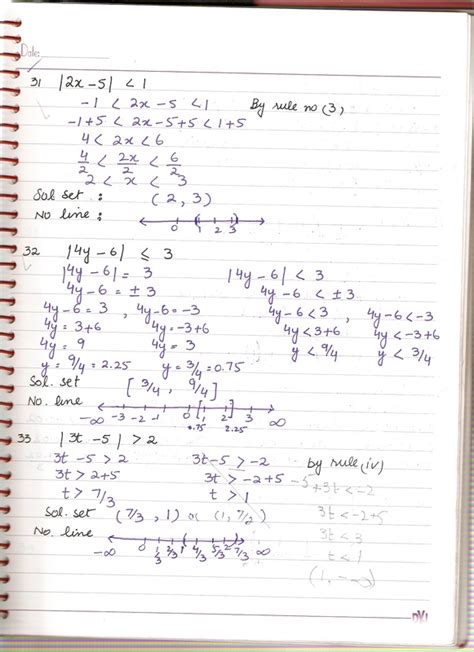 Date:
31 |2x-5| < 1
-1 < 2x-5 < 1 By rule no (3)
-1+5 < 2x-5+5 < 1+5
4 < 2x < 6
4/2 < 2x/2 < 6/2
2 < x < 3
Sol set : (2, 3)
No line : 0 1 2 3
32 |4y-6| ≤ 3
|4y-6| = 3 |4y-6| < 3
4y-6 = ±3 4y-6 < ±3
4y-6 = 3 , 4y-6 = -3 4y-6 < 3 , 4y-6 < -3
4y = 3+6 4y = -3+6 4y < 3+6 4y < -3+6
4y = 9 4y = 3 y < 9/4 y < 3/4
y = 9/4 = 2.25 y = 3/4 = 0.75
Sol. set [3/4, 9/4]
No. line -∞ -3 -2 -1 0 1 2 3 ∞
0.75 2.25
33 |3t-5| > 2
3t-5 > 2 3t-5 > -2 by rule (iv)
3t > 2+5 3t > -2+5 -5+3t < -2
t > 7/3 t > 1 3t < -2+5
Sol. set (7/3, 1) or (1, 7/2) 3t < 3
No. line -∞ 0 1/3 2/3 1 4/3 5/3 2 7/3 ∞ t < 1
(1, -∞)